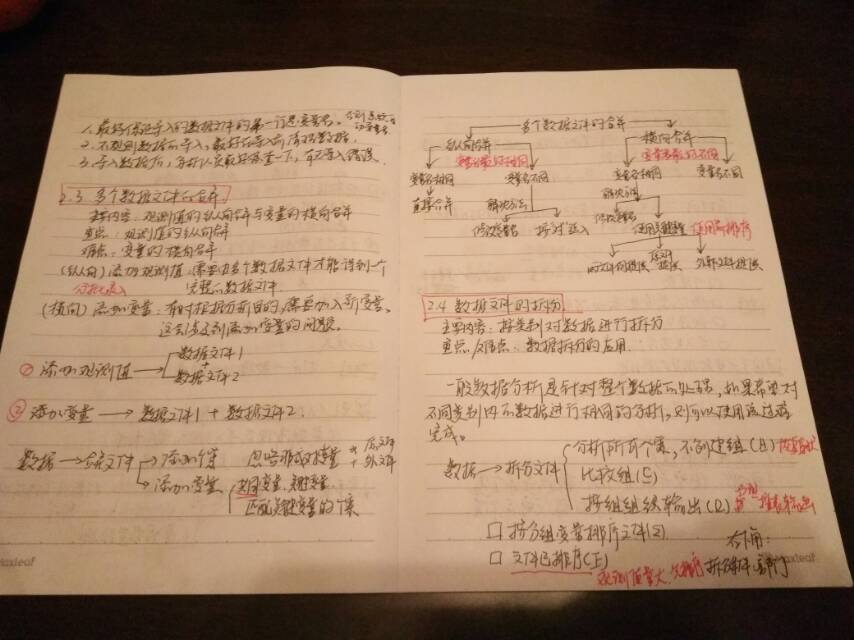 1. 最好保证导入的数据文件的第一行是变量名。
2. 不规则数据的导入,最好在导入前清理数据
3. 导入数据后,分析人员最好查看一下,有无导入错误
2.3 多个数据文件的合并
主要内容:观测值的纵向合并与变量的横向合并
重点:观测值的纵向合并
难点:变量的横向合并
(纵向)添加观测值:需要由多个数据文件才能得到一个
完整的数据文件
分批录入
(横向)添加变量:有时根据分析目的,需要加入新变量。
这会涉及到添加变量的问题。
① 添加观测值 → 数据文件1
+
数据文件2
② 添加变量 → 数据文件1 + 数据文件2
数据 → 合并文件 → 添加个案
→ 添加变量
匹配关键变量的个案
多个数据文件的合并
纵向合并 横向合并
变量名相同 变量名不同 变量名相同 变量名不同
直接合并 解决办法 解决办法
修改变量名 修改变量名 使用关键变量
2.4 数据文件的拆分
主要内容:按类别对数据进行拆分
重点/难点:数据拆分的应用
一般数据分析是针对整个数据的处理,如果希望对
不同类别内的数据进行相同的分析,则可以使用该过程
完成。
数据 → 拆分文件
分析所有个案,不创建组(A)
比较组(C)
按组组织输出(O)
□ 按分组变量排序文件(S)
□ 文件已排序(F)
右下角:
观测值量大,先排序
Maxleaf
Maxleaf